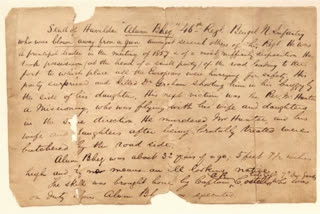 Skull of Havildar "Alum Bheg" 46th Regt. Bengal N. Infantry
who was blown away from a gun, amongst several others of his Regt. He was
a principal leader in the mutiny of 1857 & of a most ruffianly disposition. He
took possession (at the head of a small party) of the road leading to the
fort, to which place all the Europeans were hurrying for safety. His
party surprised and killed Dr. Graham shooting him in his buggy by
the side of his daughter. His next victim was the Rev. Mr. Hunter
a Missionary, who was flying with his wife and daughters
in the same direction. He murdered Mr Hunter and his
wife and daughters after being brutally treated were
butchered by the road side.
Alum Bheg was about 32 years of age, 5 feet 7 1/2 inches
high and by no means an ill looking native.
The skull was brought home by Captain Costello
on duty when Alum Bheg was executed.